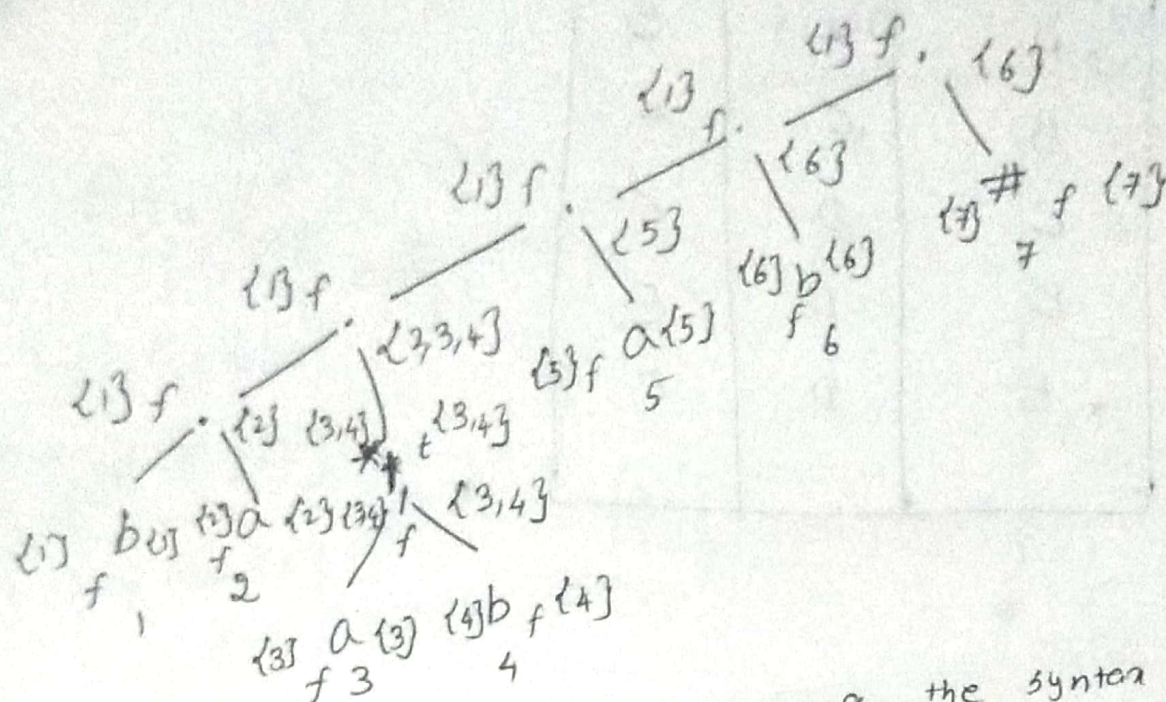 {1} f . {6}
{1} f . {6} {7} # f {7}
7
{1} f . {5} {6} b {6}
f 6
{1} f . {2,3,4} {5} f a {5}
5
{1} f . {2} {3,4} * t {3,4}
{1} b {1} {2} a {2} {3,4} | f {3,4}
f 1 f 2
{3} a {3} {4} b f {4}
f 3 4
the syntax